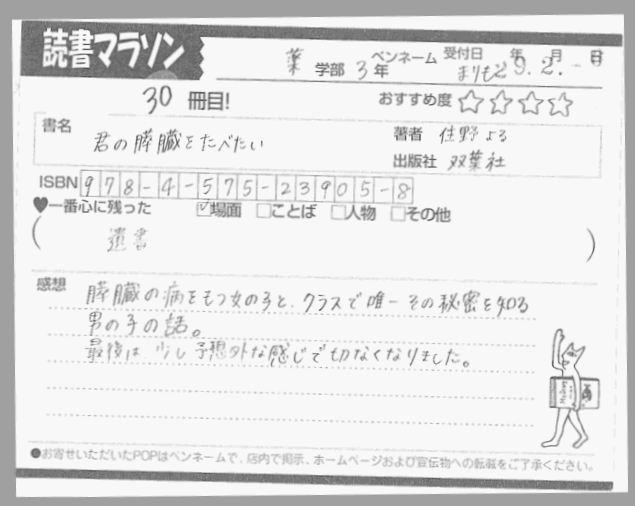 読書マラソン
薬 学部 3年 ペンネーム まりも 受付日 29.2.-6 年 月 日
30 冊目!
おすすめ度 ☆☆☆☆
書名 君の膵臓をたべたい
著者 住野よる
出版社 双葉社
ISBN 978-4-575-23905-8
♥一番心に残った ☑場面 □ことば □人物 □その他
( 遺書 )
感想 膵臓の病をもつ女の子と、クラスで唯一その秘密を知る
男の子の話。
最後は 少し予想外な感じで切なくなりました。
●お寄せいただいたPOPはペンネームで、店内で掲示、ホームページおよび宣伝物への転載をご了承ください。